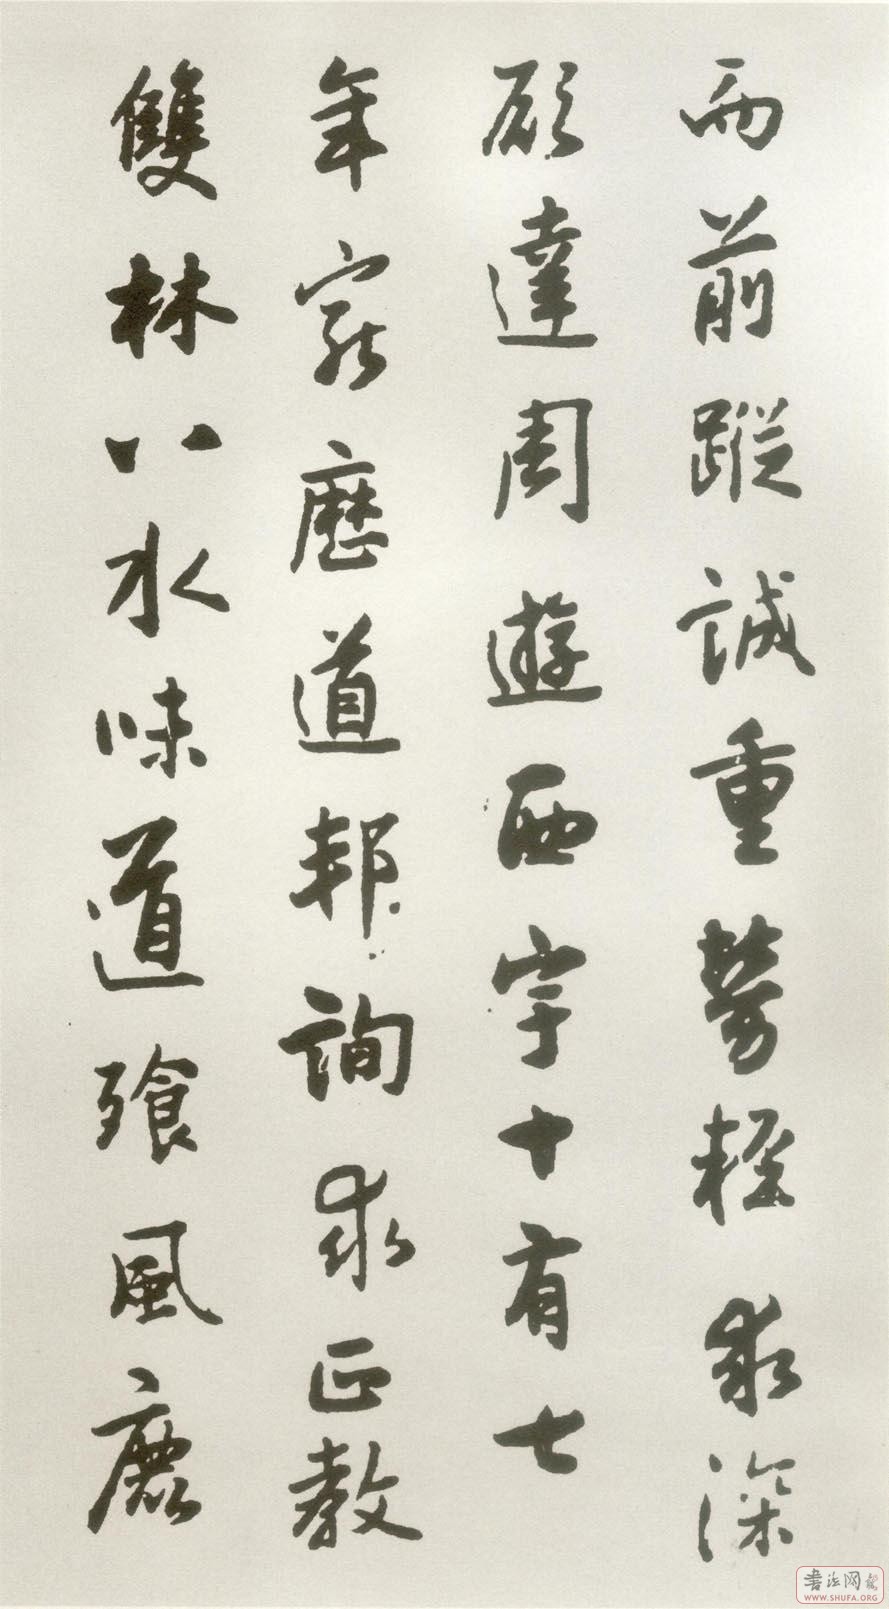 而前蹤誠重勞輕求深
願達周遊西宇十有七
年窮歷道邦詢求正教
雙林八水味道飡風鹿
書法网
WWW.SHUFA.ORG